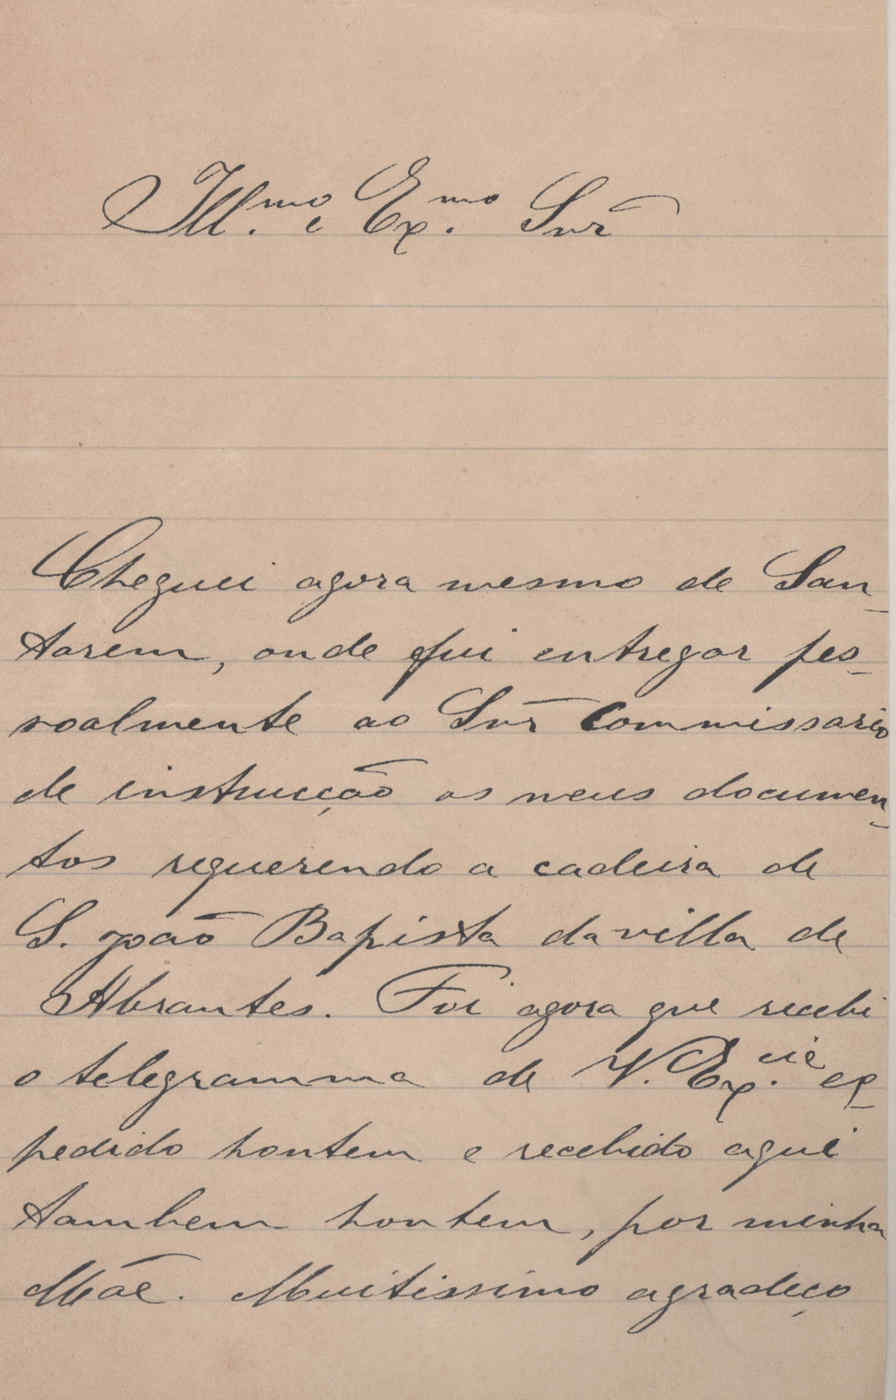 Ill.mo e Ex.mo Snr
Cheguei agora mesmo de San-
tarem, onde fui entregar pes-
soalmente ao Snr Commissario
de instrucção os meus documen-
tos requerendo a cadeira de
S. João Bapista da villa de
Abrantes. Foi agora que recebi
o telegramma de V. Ex.cie ex-
pedido hontem e recebido aqui
tambem hontem, por minha
Mãe. Muitissimo agradeço